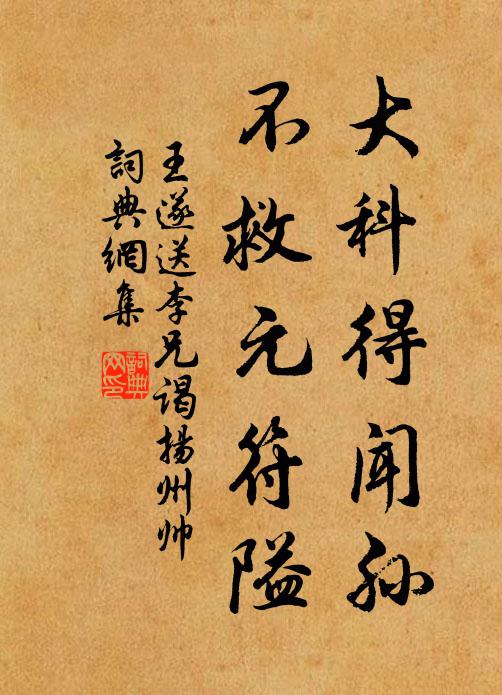 大科得闻孙
不救元符隘
王遂送李兄谒扬州帅
詞典網集
詞典网印